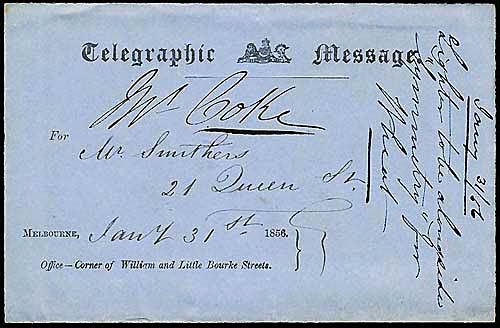 Telegraphic Message
Mr Coke
For
Mr. Smithers
21 Queen St.
MELBOURNE, Jany 31st 1856.
Office—Corner of William and Little Bourke Streets.
Jany 31/56
Lighter to be alongside
"Symmetry" for
Wheat